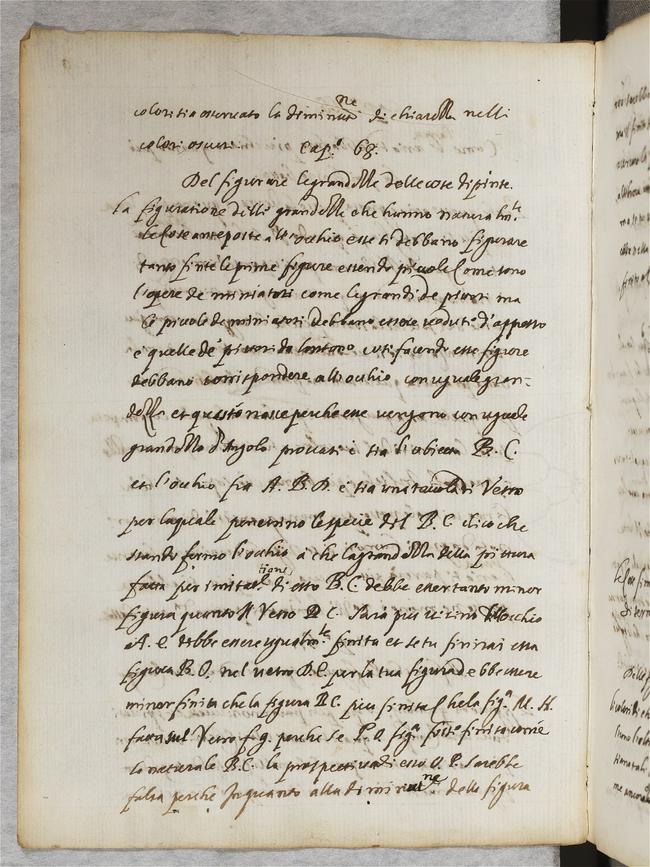 colori sia osservato la diminut.ne di chiarezza nelli
colori oscuri. Cap.o 68.
Del figurare le grandezze delle cose dipinte.
La figuratione delle grandezze che hanno naturalm.te
le cose anteposte all'occhio esse ti debbano figurare
tanto finite le prime figure essendo piccole come sono
l'opere de miniatori come le grandi de pittori ma
le piccole de miniatori debbano essere vedute d'appresso
e quelle de' pittori da lontono cosi facendo esse figure
debbano corrispondere all'occhio con uguale gran-
dezza et questo nasce perche esse vengono con uguale
grandezza d'Angolo provati e sia l'obietto B. C.
et l'occhio sia A. B. D. e sia una tavola di Vetro
per la quale penetrino le specie del B. C. dico che
stando fermo l'occhio A che la grandezza della pittura
fatta per imitat.tione di esso B. C. debbe esser tanto minor
figura quanto il Vetro D C. sara piu vicino all'occhio
A. e debbe essere ugualm.te finita et se tu finirai essa
figura B. C. nel vetro D. E. per la tua figura debbe essere
minor finita che la figura B C. piu finita che la fig.a M. N.
fatta sul Vetro f. g. perche se P. O fig.a fosse finita come
la naturale B. C. la prospettiva di esso O. P. sarebbe
falsa perche in quanto alla diminut.ne della figura